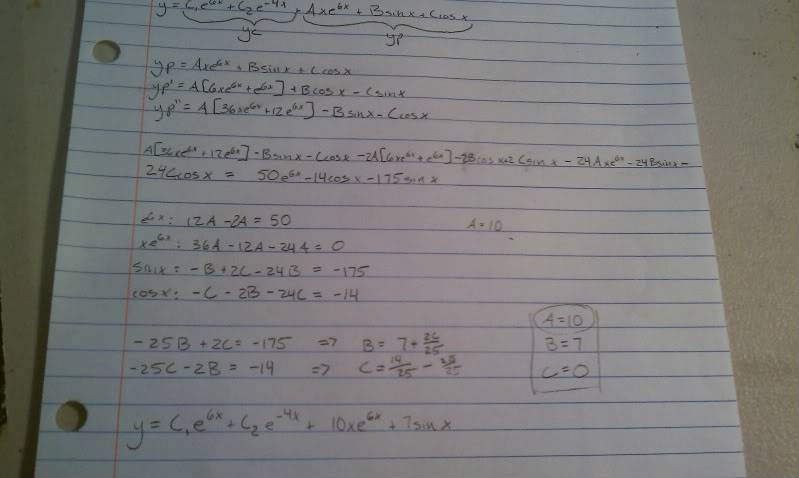 y = C₁e^6x + C₂e^-4x + Axe^6x + Bsinx + Ccosx
yc yp
yp = Axe^6x + Bsinx + Ccosx
yp' = A[6xe^6x + e^6x] + Bcosx - Csinx
yp'' = A[36xe^6x + 12e^6x] - Bsinx - Ccosx
A[36xe^6x + 12e^6x] - Bsinx - Ccosx - 2A[6xe^6x + e^6x] - 2Bcosx + 2Csinx - 24Axe^6x - 24Bsinx -
24Ccosx = 50e^6x - 14cosx - 175sinx
12A - 2A = 50 A=10
xe^6x: 36A - 12A - 24A = 0
sinx: -B + 2C - 24B = -175
cosx: -C - 2B - 24C = -14
-25B + 2C = -175 => B = 7 + 2C/25
-25C - 2B = -14 => C = 14/25 - 2B/25
A=10
B=7
C=0
y = C₁e^6x + C₂e^-4x + 10xe^6x + 7sinx